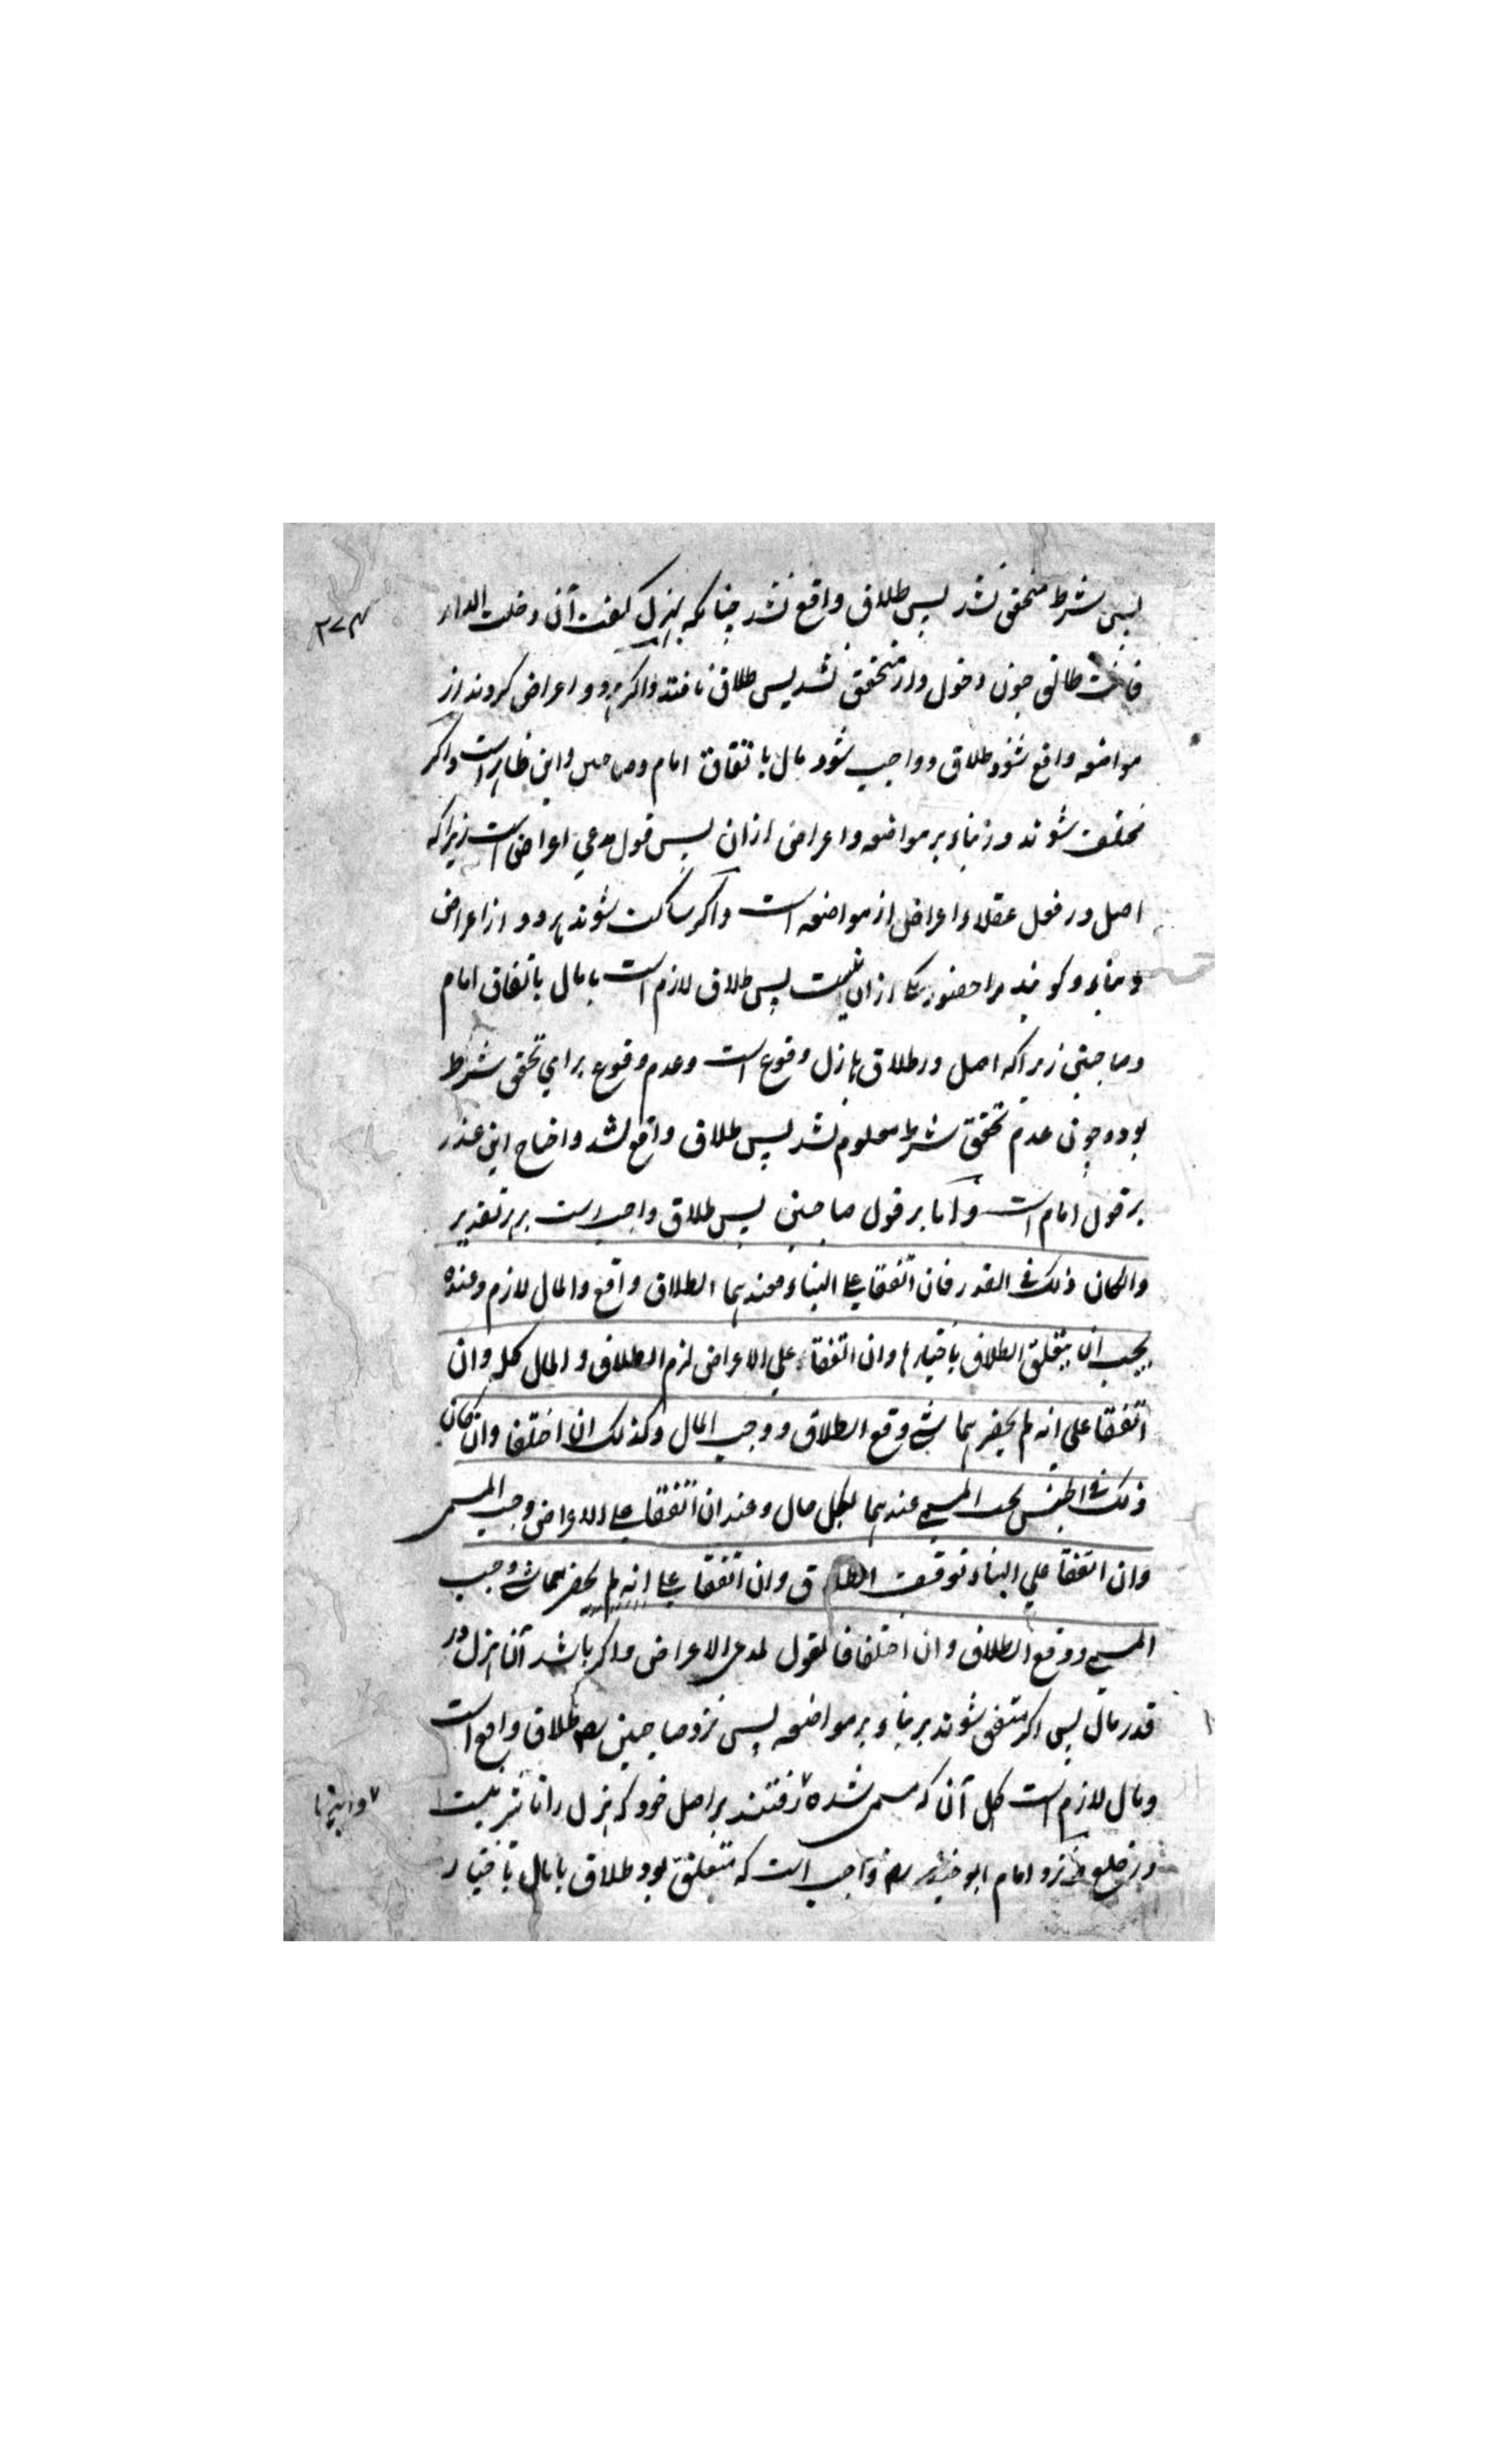 پس شرط متحقق نشد پس طلاق واقع نشد چنانکه بهزل گفت آن دخلت الدار
فانت طالق چون دخول دار متحقق نشد پس طلاق نافتد واگر هر دو اعراض کردند از
مواضعه واقع شود طلاق و واجب شود مال باتفاق امام وصاحبین واین ظاهر است واگر
مختلف شوند در بناء بر مواضعه واعراض ازان پس قول مدعی اعراض است زیراکه
اصل در فعل عقلاء اعراض از مواضعه است واگر ساکت شوند هر دو از اعراض
وبناء وگویند مرا حضور یکی ازان نیست پس طلاق لازم است با مال باتفاق امام
وصاحبین زیراکه اصل در طلاق هازل وقوع است وعدم وقوع برای تحقق شرط
بود و چون عدم تحقق شرط معلوم نشد پس طلاق واقع شد واحتیاج این عذر
بر قول امام است و اما بر قول صاحبین پس طلاق واجب است بهر تقدیر
وان کان ذلک فی القدر فان اتفقا علی البناء فعندهما الطلاق واقع والمال لازم وعنده
یجب ان یتعلق الطلاق باختیارها وان اتفقا علی الاعراض لزم الطلاق والمال کله وان
اتفقا علی انه لم یحضرهما شی وقع الطلاق ووجب المال وکذلک ان اختلفا وان کان
ذلک فی الجنس یجب المسمی عندهما بکل حال وعنده ان اتفقا علی الاعراض وجب المسمی
وان اتفقا علی البناء توقف الطلاق وان اتفقا علی انه لم یحضرهما شی وجب
المسمی ووقع الطلاق وان اختلفا فالقول لمدعی الاعراض واگر باشد آن هزل در
قدر مال پس اگر متفق شوند بر بناء بر مواضعه پس نزد صاحبین رح طلاق واقع است
ومال لازم است کل آن که مسمی شده رفتند بر اصل خود که هزل را تاثیر نیست
در خلع و نزد امام ابو حنیفه رح واجب است که متعلق بود طلاق با مال باختیار